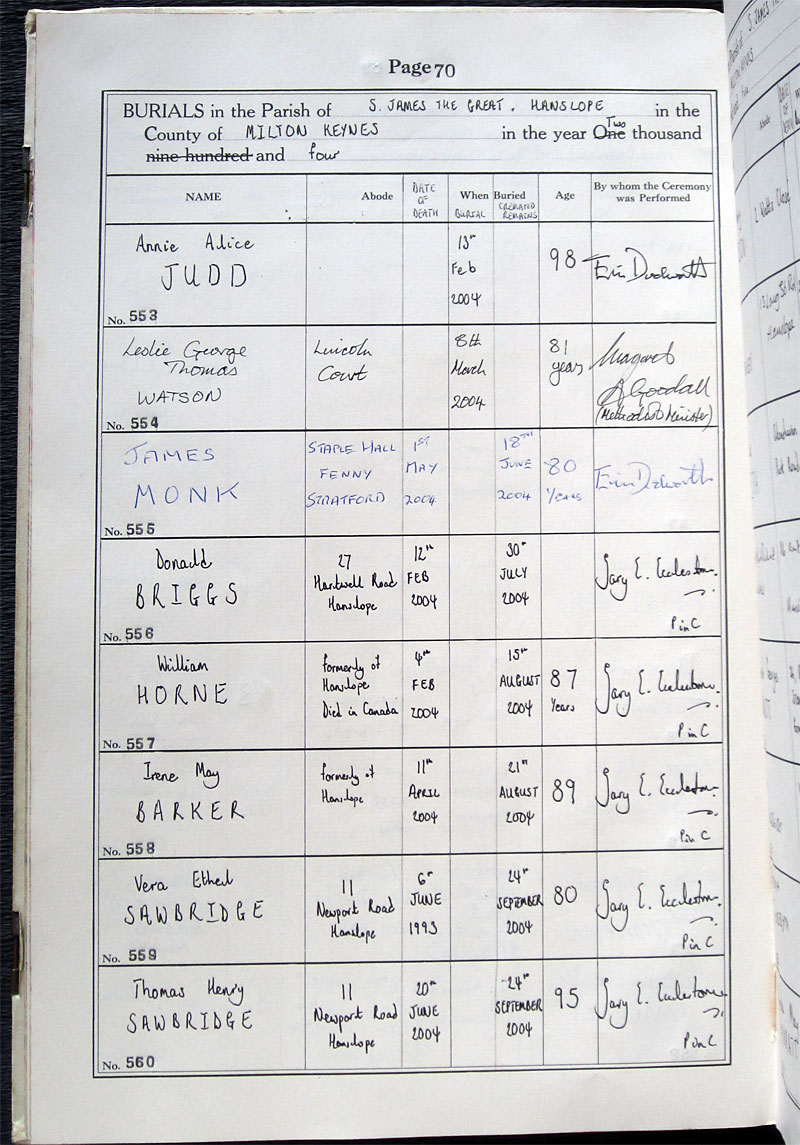 Page 70
BURIALS in the Parish of S. JAMES THE GREAT, HANSLOPE in the
County of MILTON KEYNES in the year One Two thousand
nine hundred and four
NAME Abode DATE OF DEATH When Buried BURIAL CREMATED REMAINS Age By whom the Ceremony was Performed
Annie Alice
JUDD
13th
Feb
2004
98
No. 553
Leslie George
Thomas
WATSON
Lincoln
Court
8th
March
2004
81
years
Margaret
A Goodall
(Methodist Minister)
No. 554
JAMES
MONK
STAPLE HALL
FENNY
STRATFORD
1ST
MAY
2004
18TH
JUNE
2004
80
Years
No. 555
Donald
BRIGGS
27
Hartwell Road
Hanslope
12th
FEB
2004
30th
JULY
2004
Gary E. Ecclestone.
P in C
No. 556
William
HORNE
formerly of
Hanslope
Died in Canada
4th
FEB
2004
15th
AUGUST
2004
87
Years
Gary E. Ecclestone.
P in C
No. 557
Irene May
BARKER
formerly of
Hanslope
11th
APRIL
2004
21st
AUGUST
2004
89
Gary E. Ecclestone.
P in C
No. 558
Vera Ethel
SAWBRIDGE
11
Newport Road
Hanslope
6th
JUNE
1993
24th
SEPTEMBER
2004
80
Gary E. Ecclestone.
P in C
No. 559
Thomas Henry
SAWBRIDGE
11
Newport Road
Hanslope
20th
JUNE
2004
24th
SEPTEMBER
2004
95
Gary E. Ecclestone
P in C
No. 560